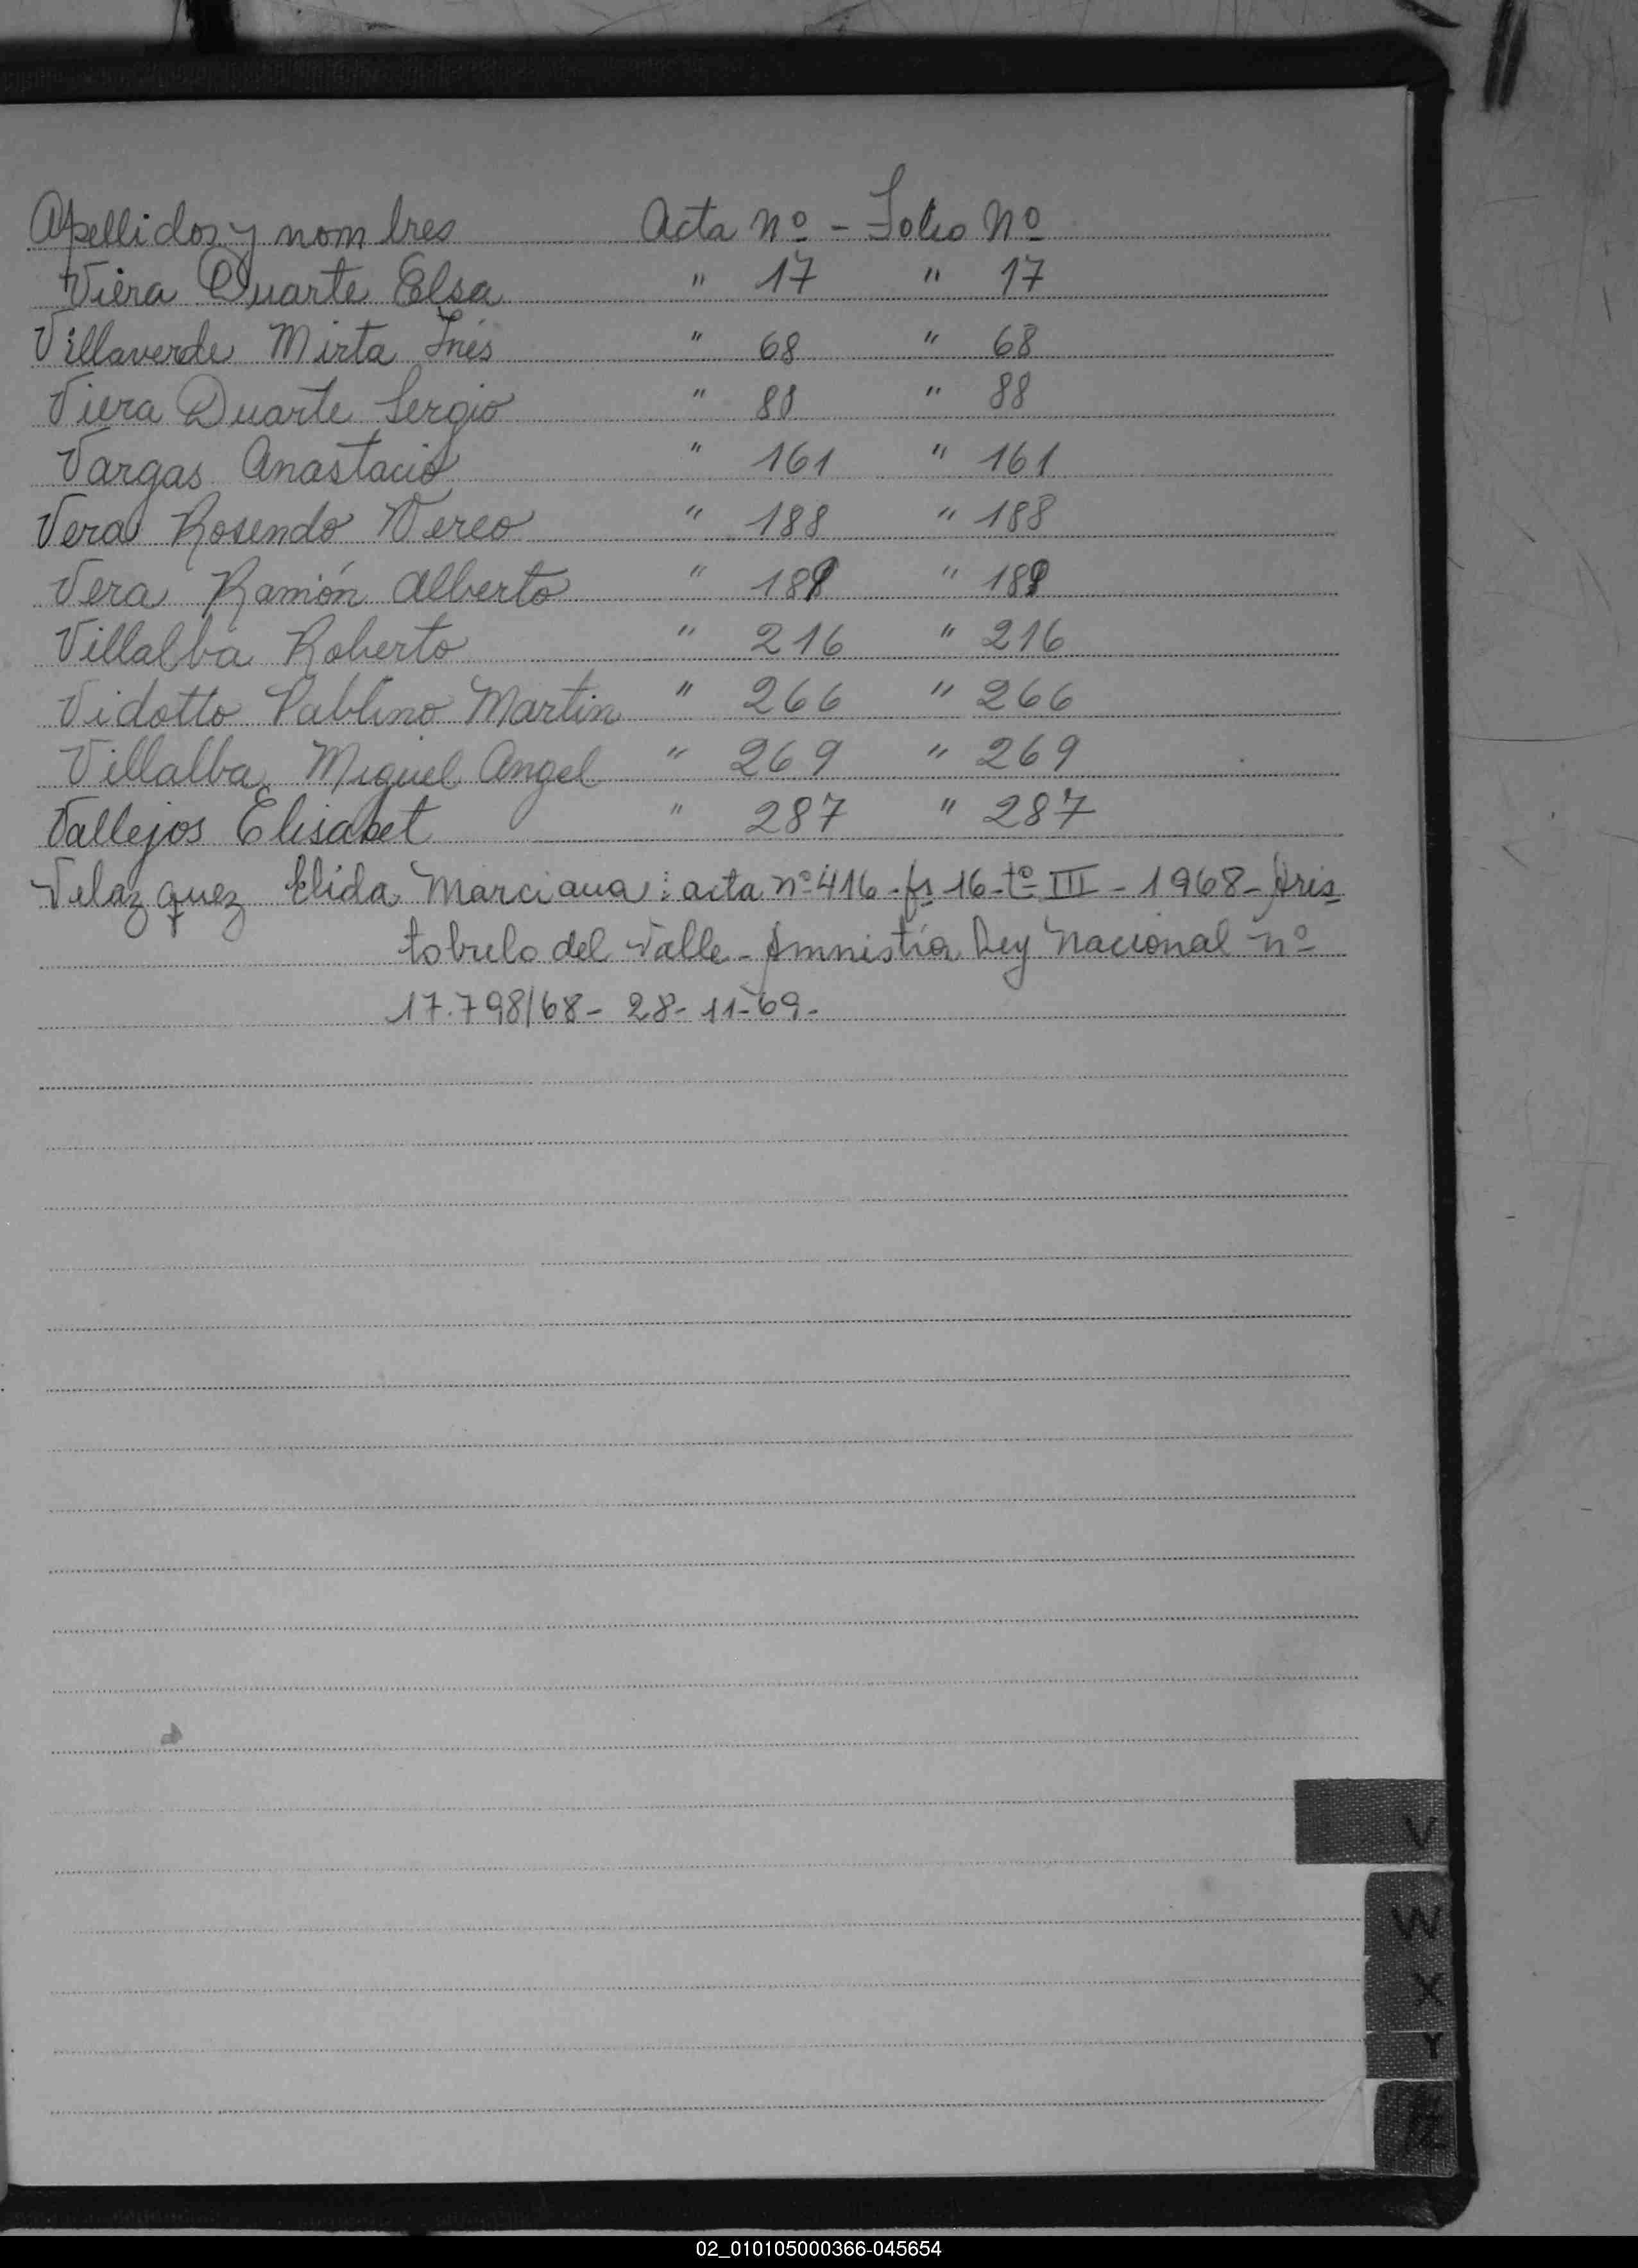 Apellidos y nombres Acta nº - Folio nº
Viera Duarte Elsa " 17 " 17
Villaverde Mirta Inés " 68 " 68
Viera Duarte Sergio " 88 " 88
Vargas Anastacio " 161 " 161
Vera Rosendo Nereo " 188 " 188
Vera Ramón Alberto " 189 " 189
Villalba Roberto " 216 " 216
Vidotto Pablino Martin " 266 " 266
Villalba Miguel Angel " 269 " 269
Vallejos Elisabet " 287 " 287
Velazquez Elida Marciana: acta nº 416 - fs 16 - tº III - 1968 - Aris
tobulo del Valle - Amnistía Ley Nacional nº
17.798/68 - 28 - 11 - 69 -
V
W
X
Y
Z
02_010105000366-045654